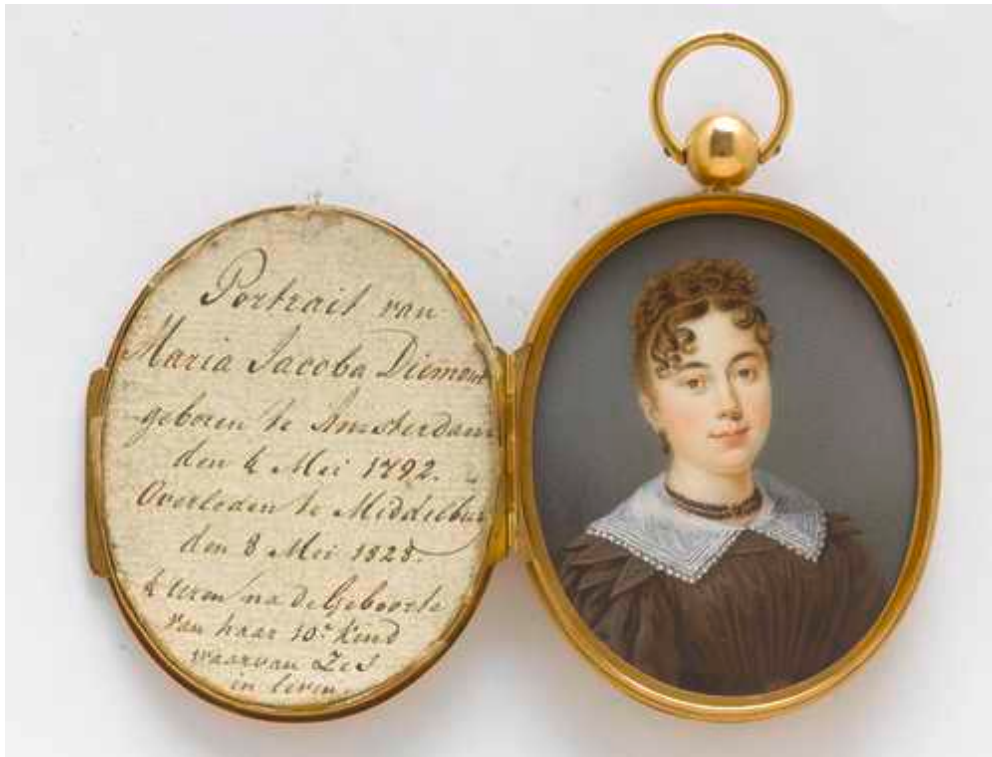 Portrait van
Maria Jacoba Diemont
geboren te Amsterdam
den 4 Mei 1792.
Overleden te Middelbur
den 8 Mei 1828
4 uren na de Geboorte
van haar 10e Kind
waarvan Zes
in leven.